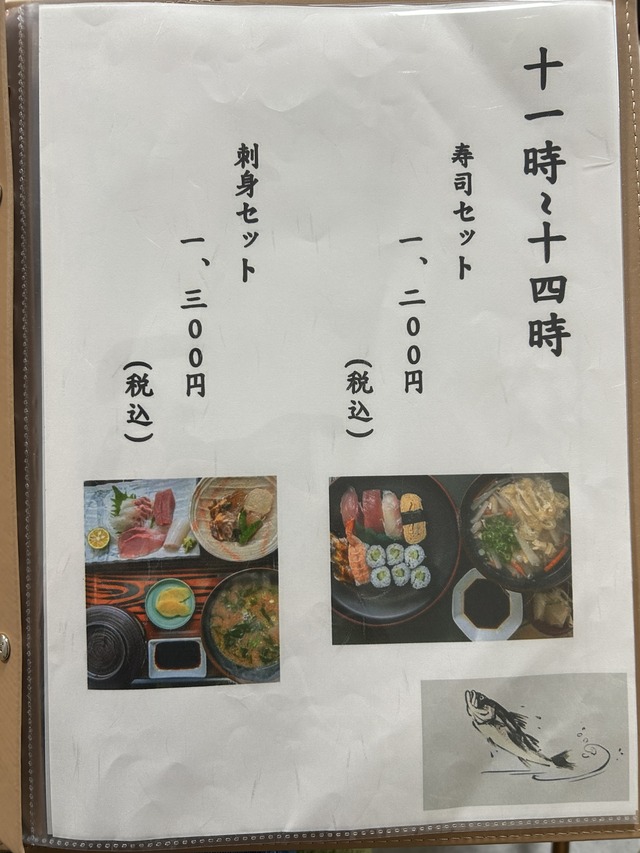 十一時～十四時
寿司セット
一、二００円
（税込）
刺身セット
一、三００円
（税込）